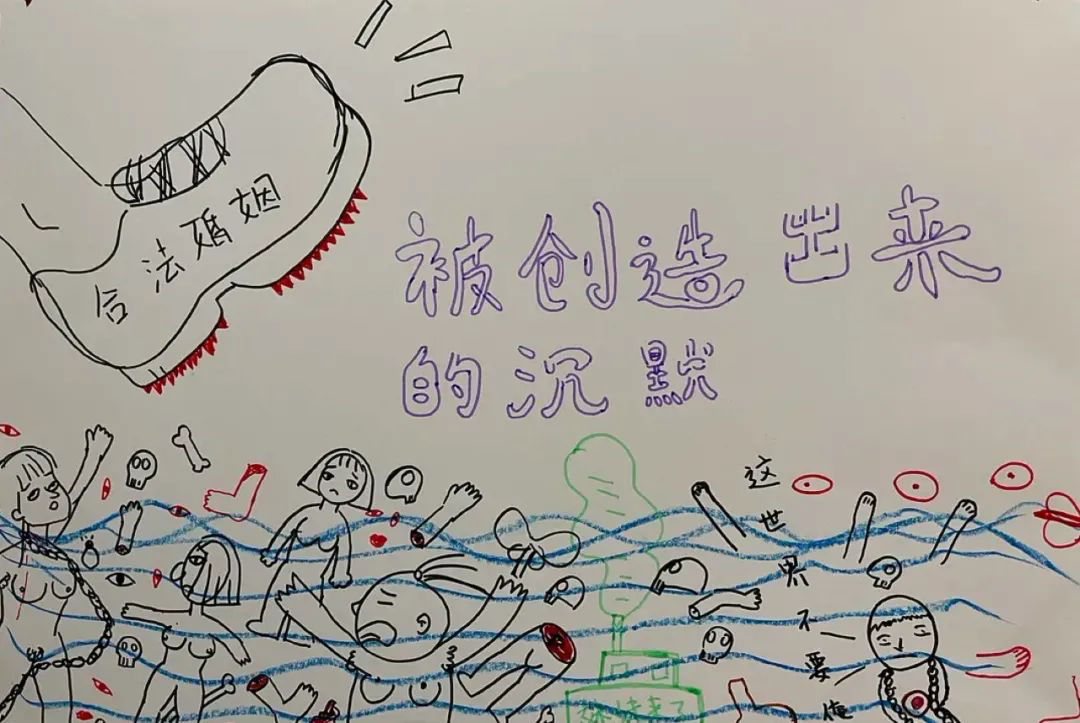 合法婚姻
被创造出来
的沉默
这世界不要俺